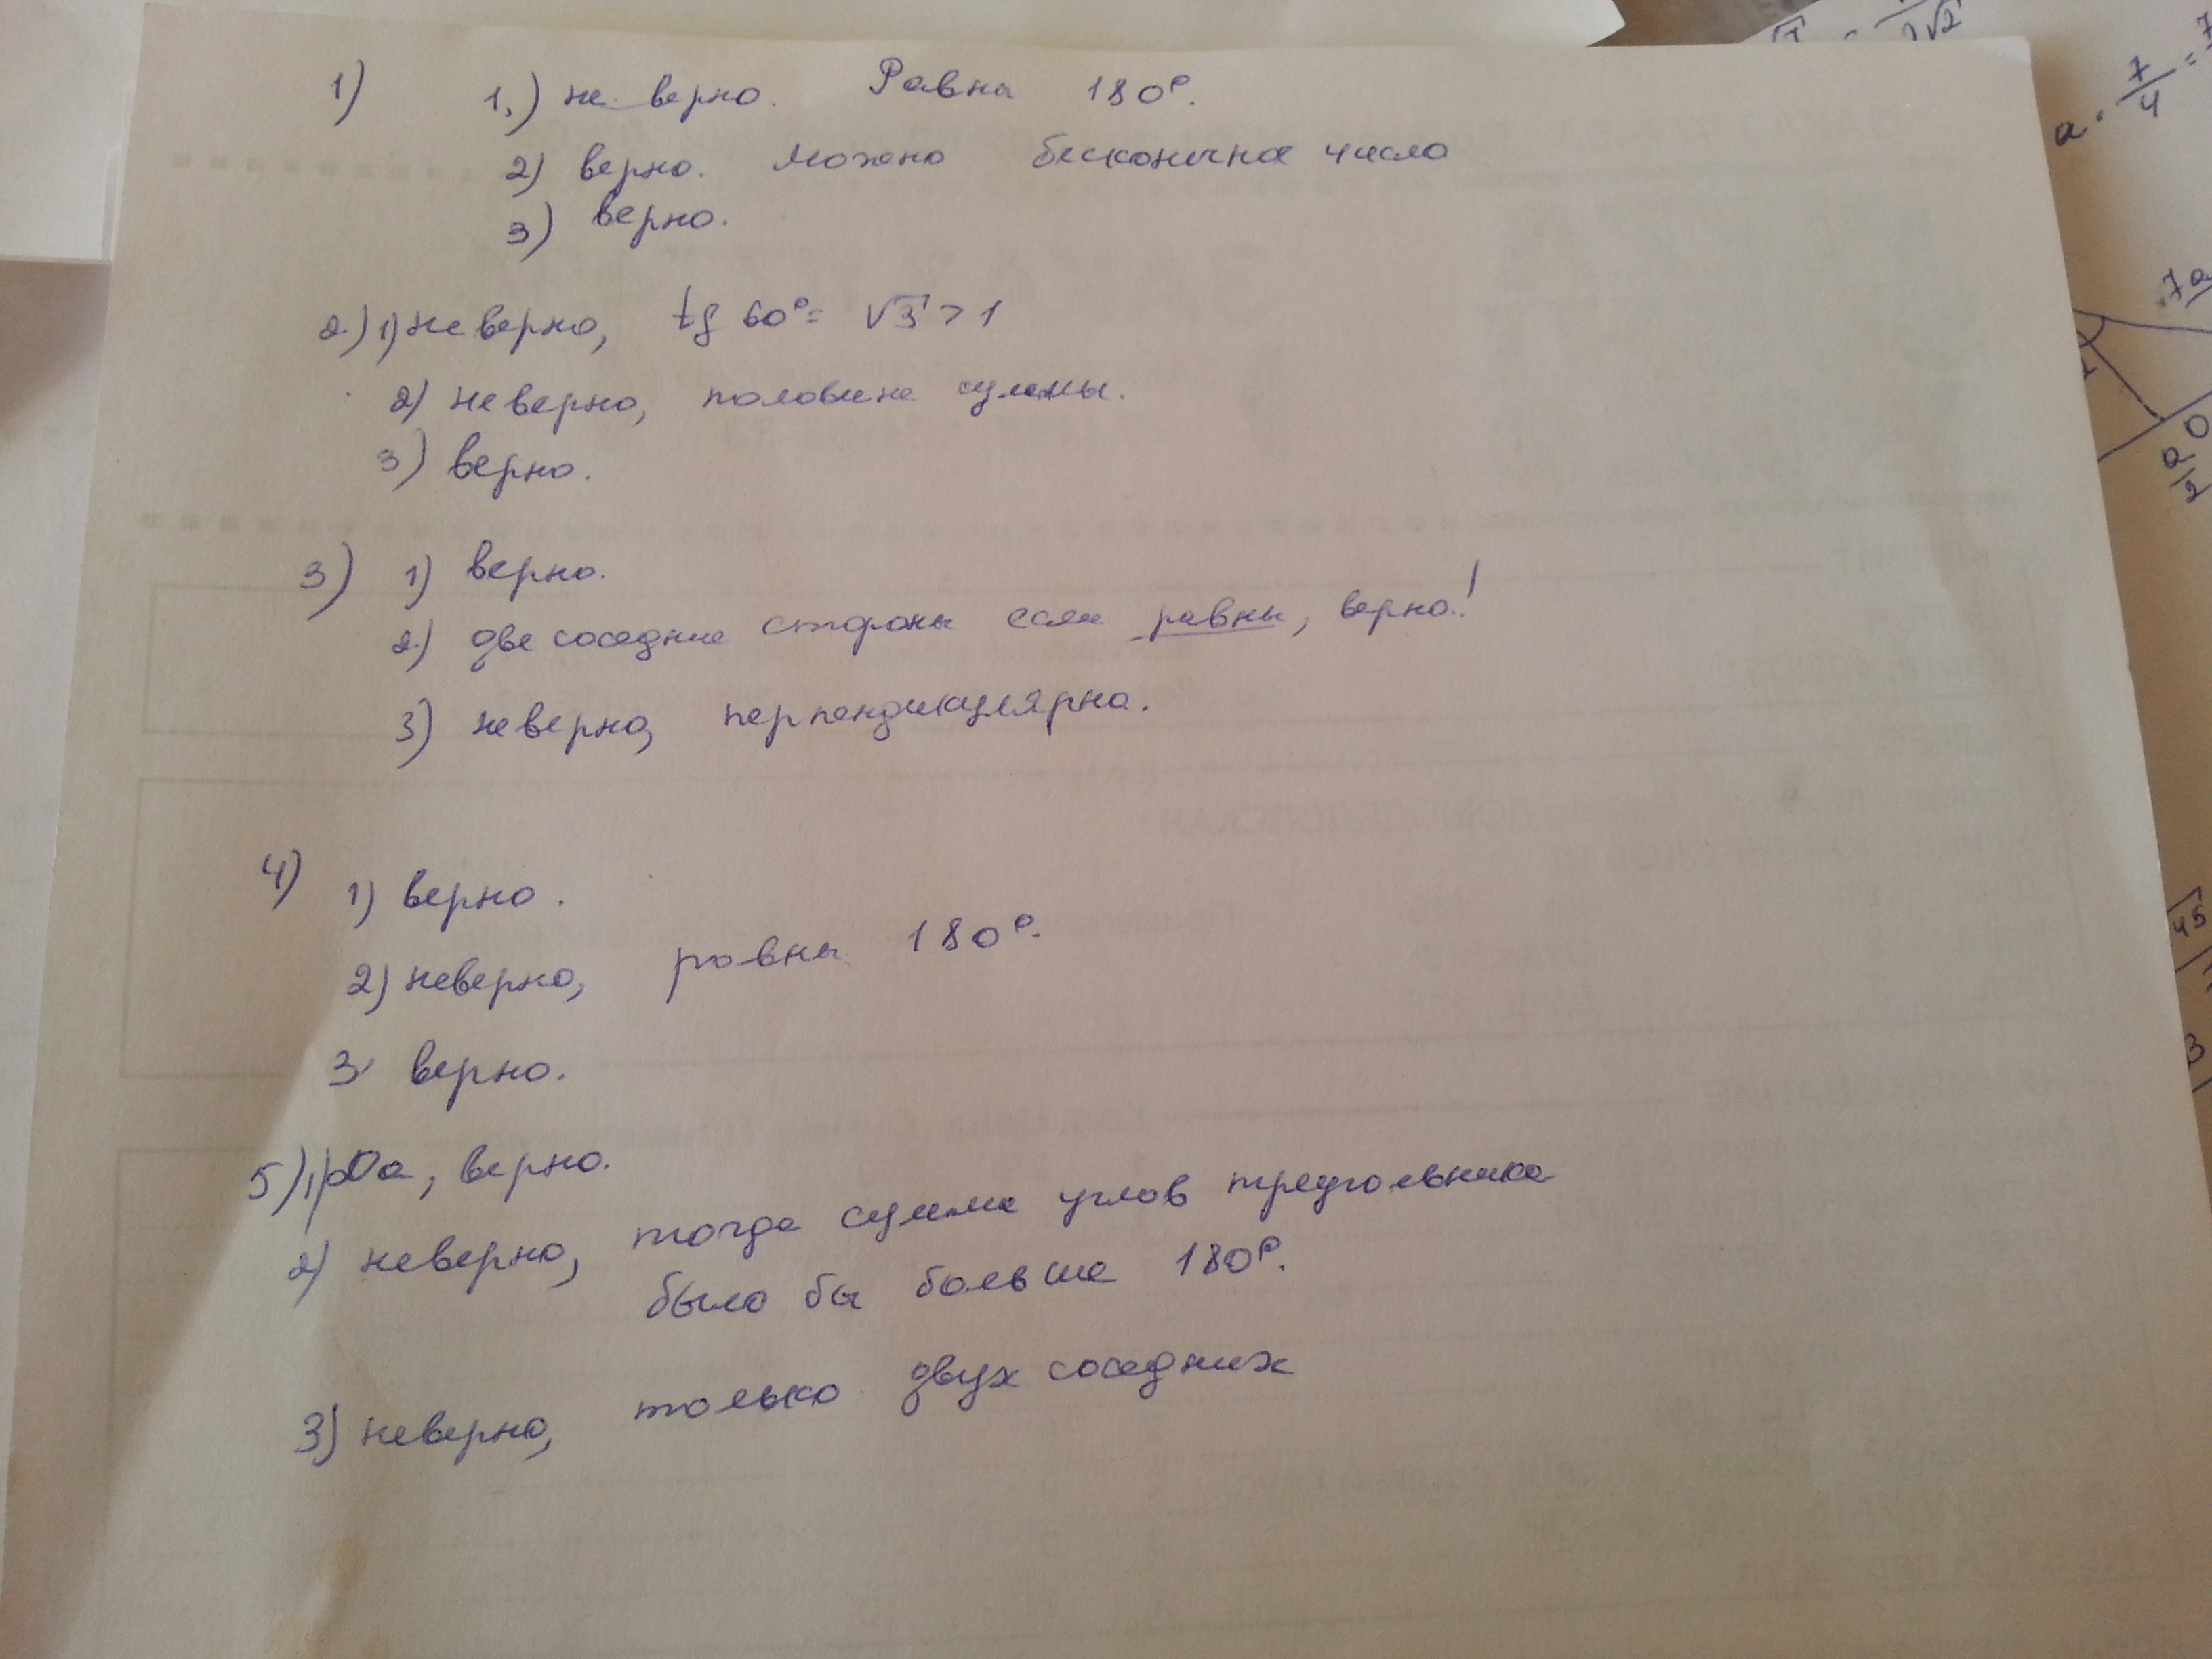 1) 1.) не верно. Равна 180°.
2) верно. Можено бесконечное число
3) верно.
2.) 1) неверно, tg 60° = √3 > 1
2) неверно, половине суммы.
3) верно.
3) 1) верно.
2) две соседние стороны если равны, верно!
3) неверно, перпендикулярно.
4) 1) верно.
2) неверно, равны 180°.
3) верно.
5) 1) Да, верно.
2) неверно, тогда сумма углов треугольника
было бы больше 180°.
3) неверно, только двух соседних
a · 7/4 = 7
2√2
7a
45
3